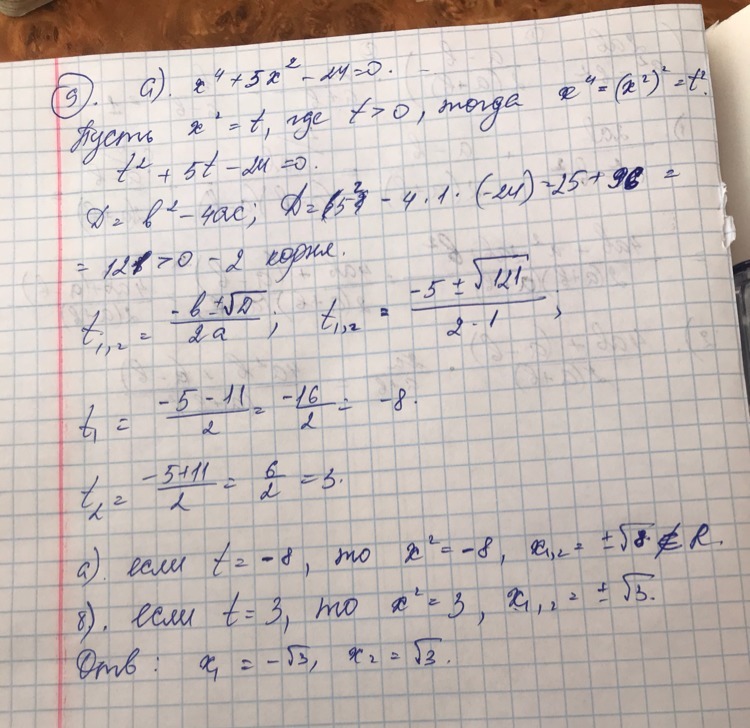 9). а). x⁴ + 5x² - 24 = 0.
Пусть x² = t, где t > 0, тогда x⁴ = (x²)² = t².
t² + 5t - 24 = 0.
D = b² - 4ac; D = (5²) - 4 · 1 · (-24) = 25 + 96 =
= 121 > 0 - 2 корня.
t₁,₂ = (-b ± √D)/(2a); t₁,₂ = (-5 ± √121)/(2 · 1);
t₁ = (-5 - 11)/2 = -16/2 = -8.
t₂ = (-5 + 11)/2 = 6/2 = 3.
а). если t = -8, то x² = -8, x₁,₂ = ±√8 ∉ R.
б). если t = 3, то x² = 3, x₁,₂ = ±√3.
Отв: x₁ = -√3, x₂ = √3.